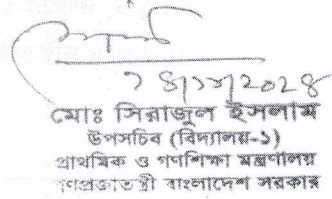 মোঃ সিরাজুল ইসলাম
উপসচিব (বিদ্যালয়-১)
প্রাথমিক ও গণশিক্ষা মন্ত্রণালয়
গণপ্রজাতন্ত্রী বাংলাদেশ সরকার